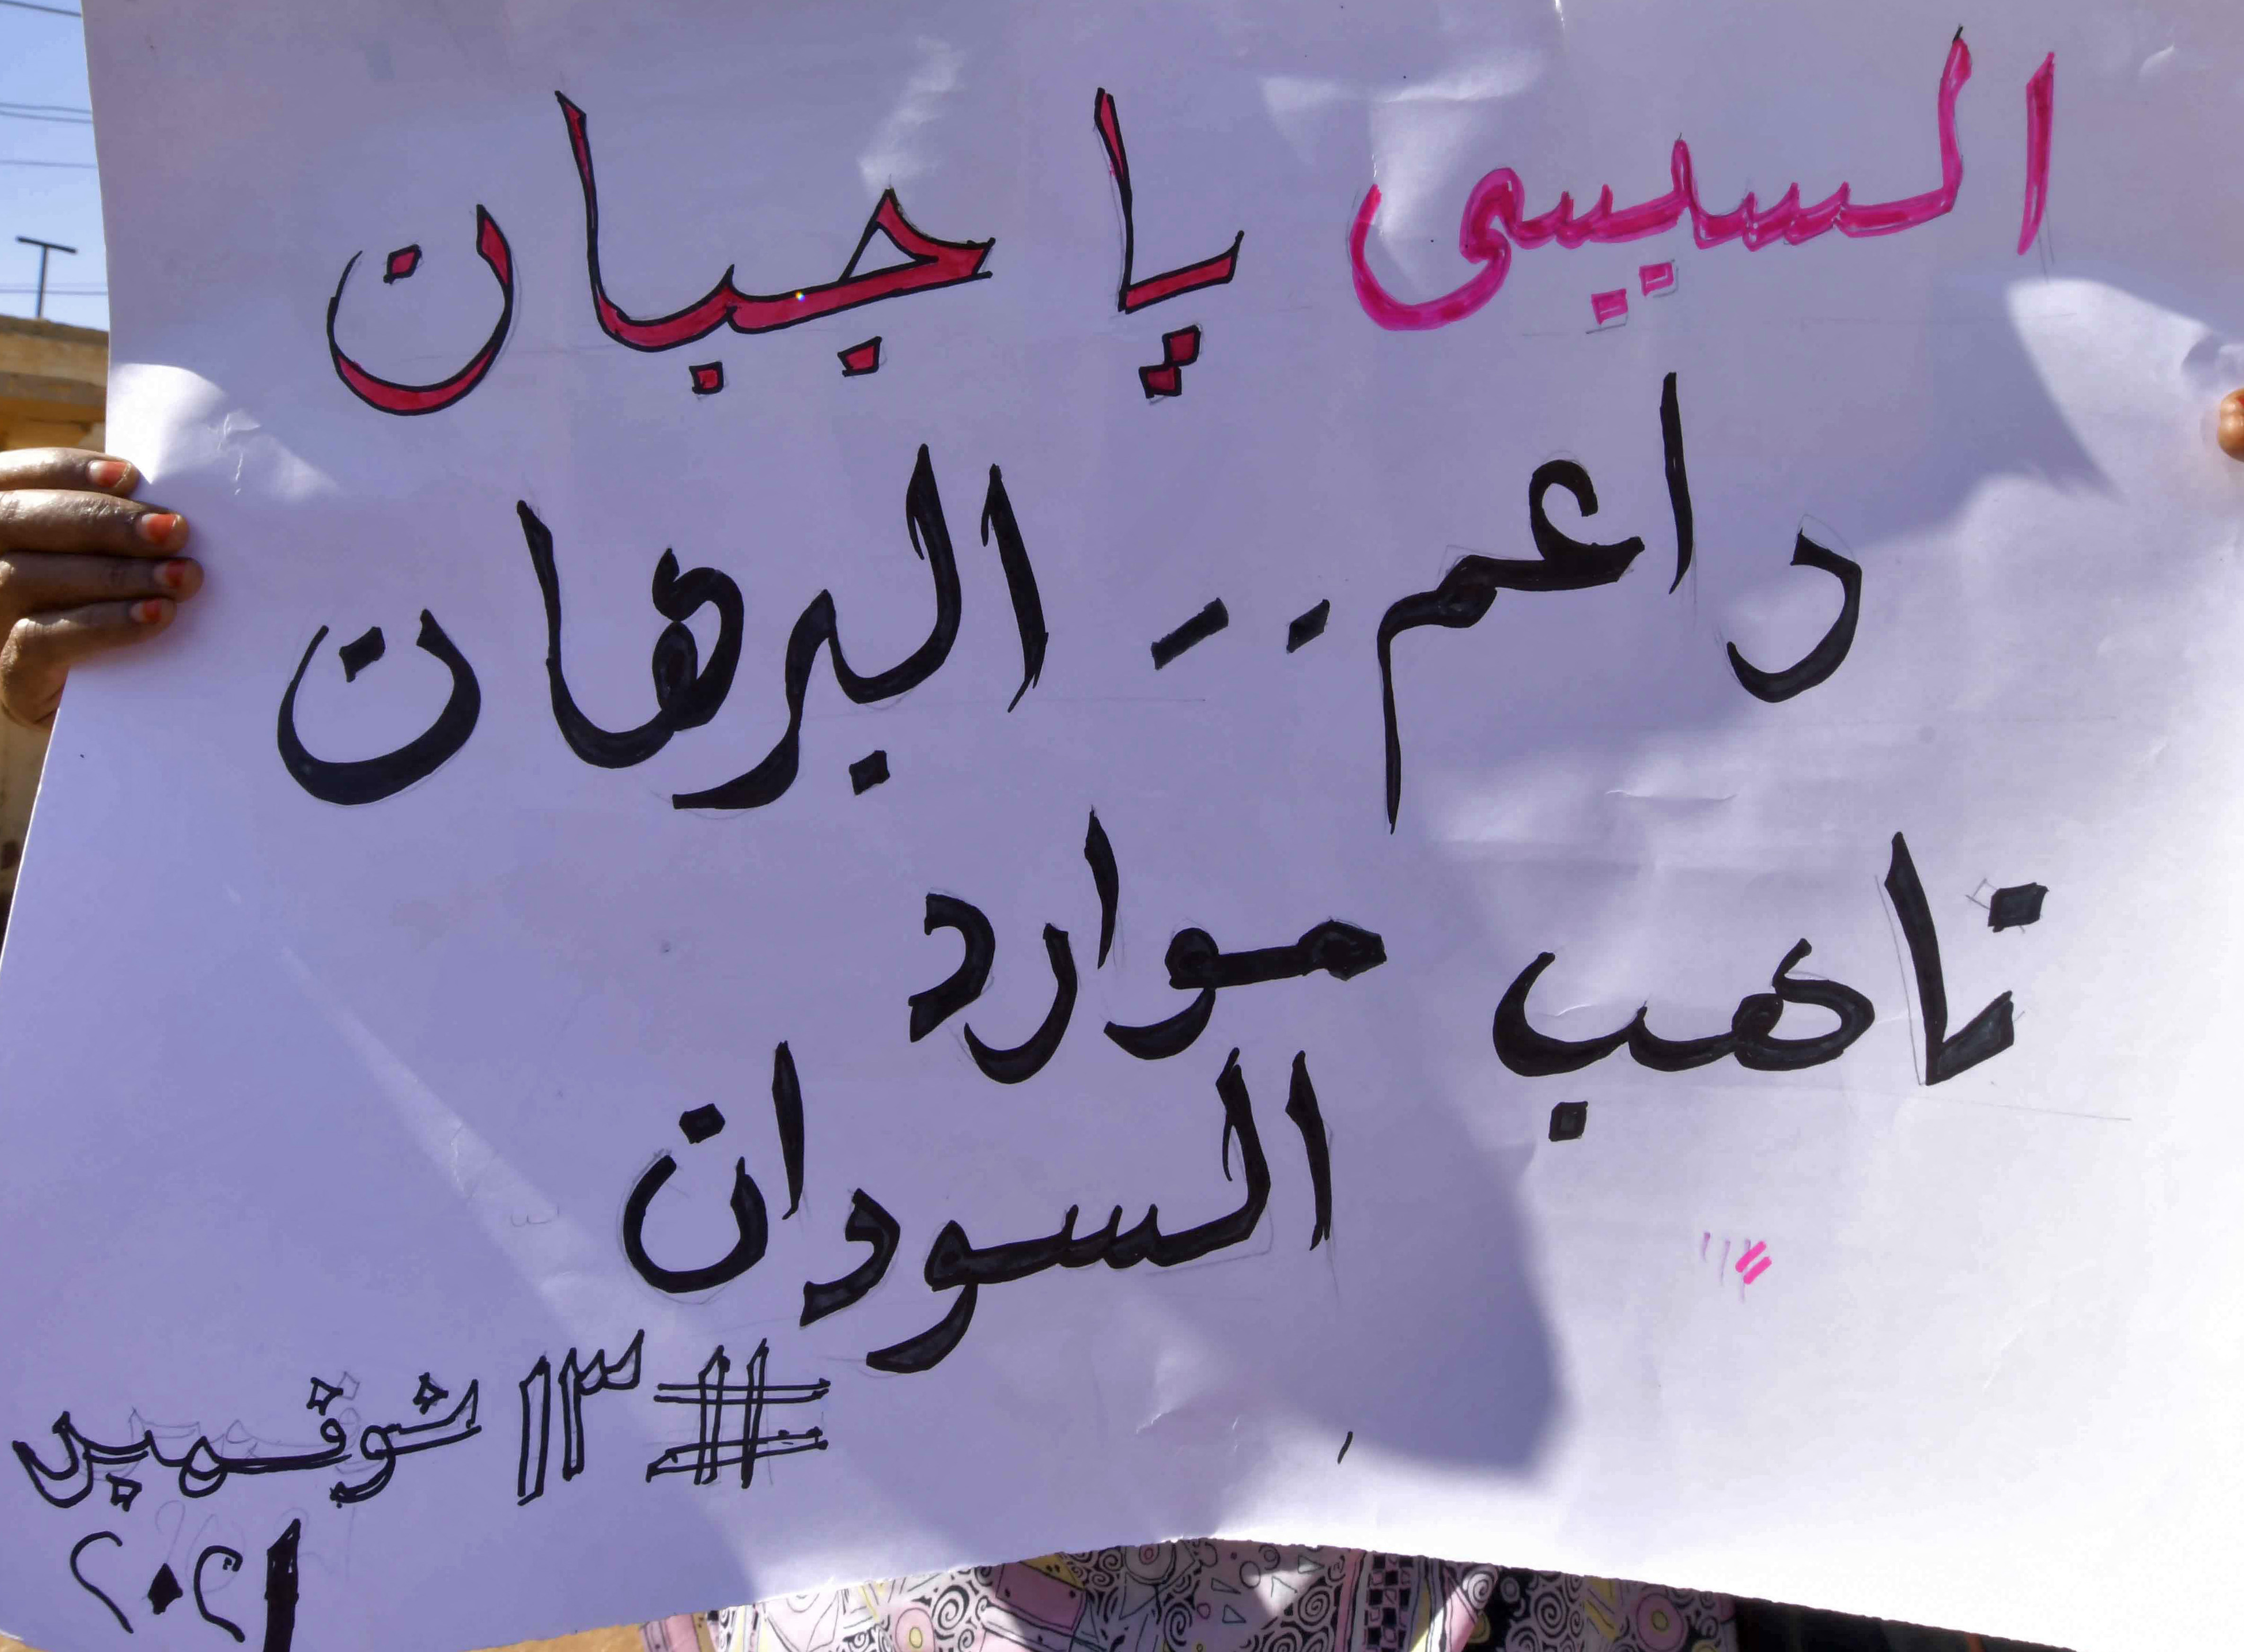 السيسى يا جبان
داعم .. البرهان
ناهب موارد
السودان
#١٣ نوفمبر
٢٠٢١